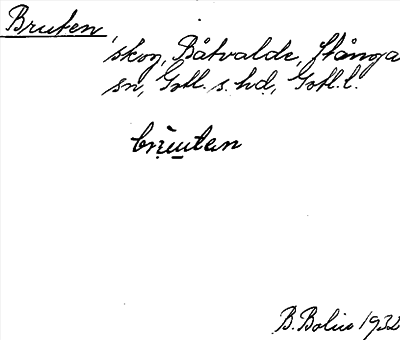 Bruten,
skog, Båtvalde, Stånga
sn, Gotl. s. hd, Gotl. l.
B. Bolin 1932